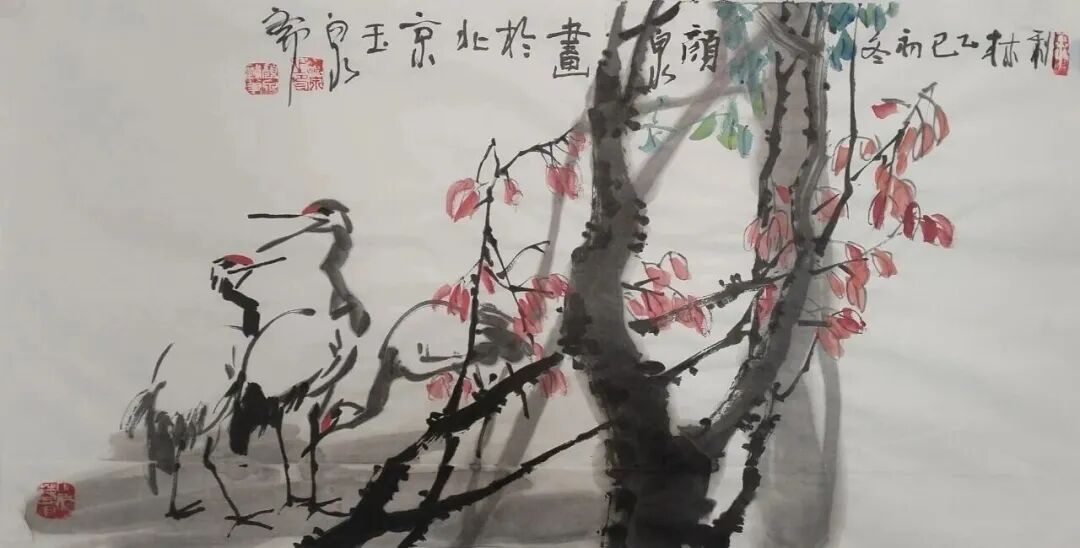 林乙巳初冬顏泉畫於北京玉泉